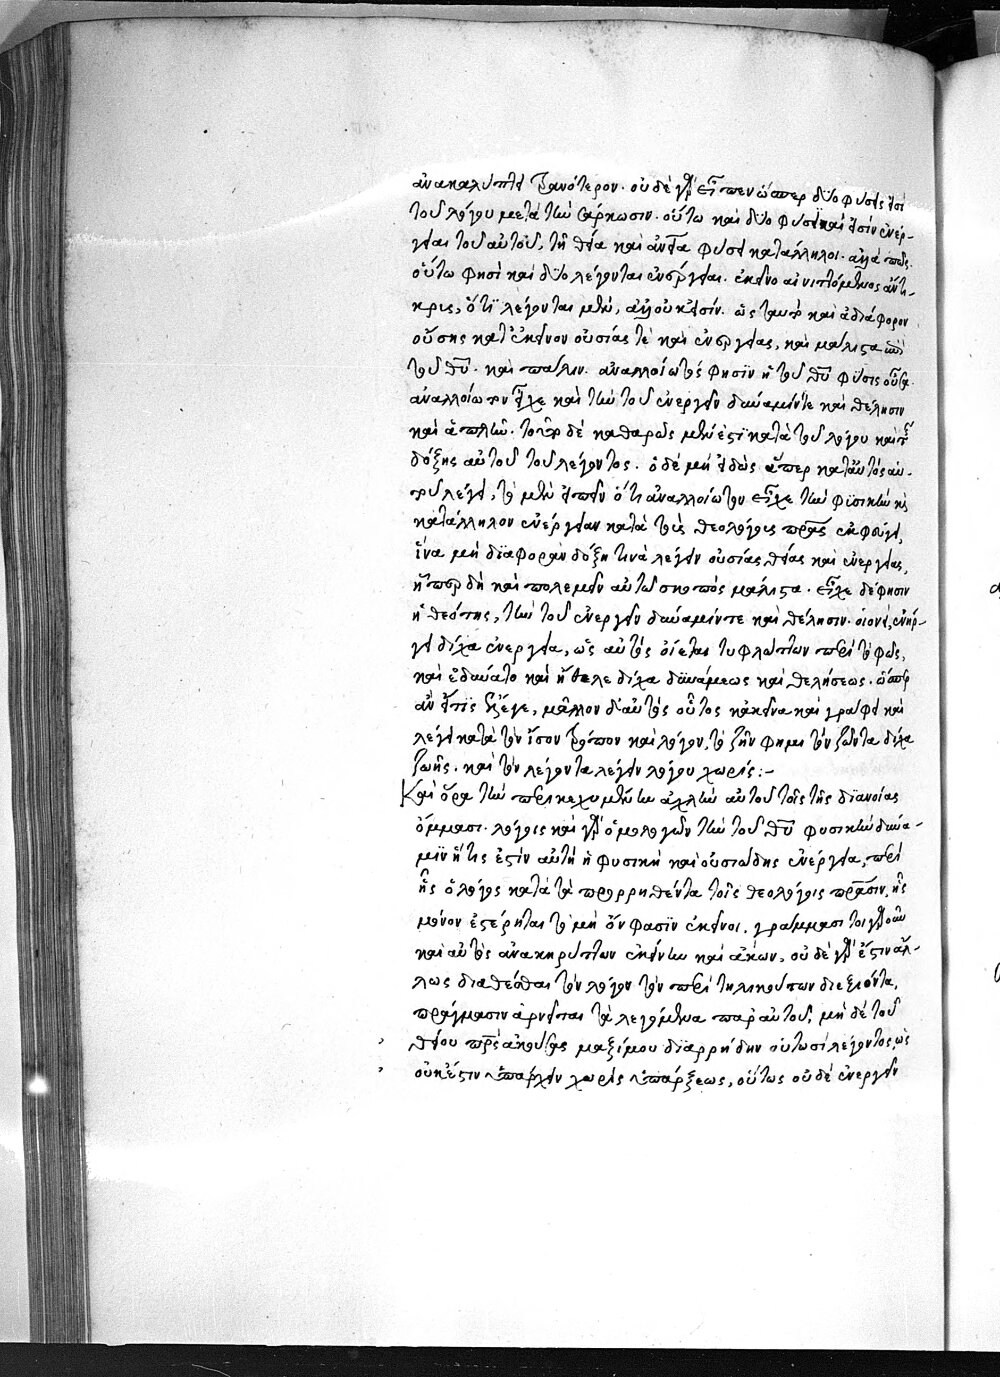 ἀνακαλύπτει τρανότερον. οὐδὲ γὰρ εἶπεν ὥσπερ δύο φύσεις εἰσὶ
τοῦ λόγου μετὰ τὴν σάρκωσιν. οὕτω καὶ δύο φυσικαί εἰσιν ἐνέρ-
γειαι τοῦ αὐτοῦ, τῇ θεία καὶ φύσει κατάλληλοι. ἀλλὰ πῶς.
οὕτω φησὶ καὶ δύο λέγονται ἐνέργειαι. ἐκεῖνο αἰνιττόμενος ἄντι-
κρις, ὅτι λέγονται μέν, ἀλλ' οὐκ εἰσίν. ὡς ταυτοῦ καὶ ἀδιάφορον
οὔσης κατ' ἐκεῖνον οὐσίας τὲ καὶ ἐνεργείας, καὶ μάλιστα ἐπὶ
τοῦ θυ. καὶ πάλιν. ἀναλλοίωτός φησὶν ἡ τοῦ θυ φύσις οὖσα.
ἀναλλοίωτον εἶχε καὶ τὴν τοῦ ἐνεργεῖν δύναμίν τε καὶ θέλησιν
καὶ ἁπλῆν. τοῦτο δὲ καθαρῶς μέν ἐστι κατὰ τοῦ λόγου καὶ τῆς
δόξης αὐτοῦ τοῦ λέγοντος. ὁ δὲ μὴ εἰδὼς ἅπερ κατ' αὐτὸς αὑ-
τοῦ λέγει, τὸ μὲν εἰπεῖν ὅτι ἀναλλοίωτον εἶχε τὴν φυσικὴν κὶ
κατάλληλον ἐνέργειαν κατὰ τοὺς θεολόγους πρας ἐκφεύγει,
ἵνα μὴ διαφορὰν δόξῃ τινὰ λέγειν οὐσίας θείας καὶ ἐνεργείας,
ἥπερ δὴ καὶ πολεμεῖν αὐτῷ σκοπὸς μάλιστα. εἶχε δέ φησιν
ἡ θεότης, τὴν τοῦ ἐνεργεῖν δύναμίν τε καὶ θέλησιν. οἱονεὶ, ἐνήρ-
γει δίχα ἐνεργείας, ὡς αὐτὸς οἴεται τυφλώττων περὶ τὸ φῶς,
καὶ ἐδύνατο καὶ ἤθελε δίχα δυνάμεως καὶ θελήσεως. ὥσπερ
ἂν εἴ τις ἔλεγε, μᾶλλον δ' αὐτὸς οὗτος κἀκεῖνα καὶ γράφει καὶ
λέγει κατὰ τὸν ἴσον τρόπον καὶ λόγον, τὸ ζῆν φημι τὸν ζῶντα δίχα
ζωῆς. καὶ τὸν λέγοντα λέγειν λόγου χωρίς:-
Καὶ ὅρα τὴν περικεχυμένην ἀχλὺν αὐτοῦ τοῖς τῆς διανοίας
ὄμμασι. λόγοις καὶ γὰρ ὁμολογῶν τὴν τοῦ θυ φυσικὴν δύνα-
μιν ἥτις ἐστὶν αὐτὴ ἡ φυσικὴ καὶ οὐσιώδης ἐνέργεια, περὶ
ἧς ὁ λόγος κατὰ τὰ προρρηθέντα τοῖς θεολόγοις πράσιν, ἧς
μόνον ἐστέρηται τὸ μὴ ὄν φασὶν ἐκεῖνοι. γράμμασι τοιγαροῦν
καὶ αὐτὸς ἀνακηρύττων ἐκείνην καὶ ἄκων, οὐδὲ γὰρ ἔστιν ἄλ-
λως διαθέσθαι τὸν λόγον τὸν περὶ τηλικούτων διεξιόντα,
πράγμασιν ἀρνεῖται τὰ λεγόμενα παρ' αὐτοῦ, μηδὲ τοῦ
θείου πρς ἀκούσας μαξίμου διαρρήδην οὑτωσὶ λέγοντος, ὡς
οὐκ ἔστιν ὑπάρχειν χωρὶς ὑπάρξεως, οὕτως οὐδὲ ἐνεργεῖν